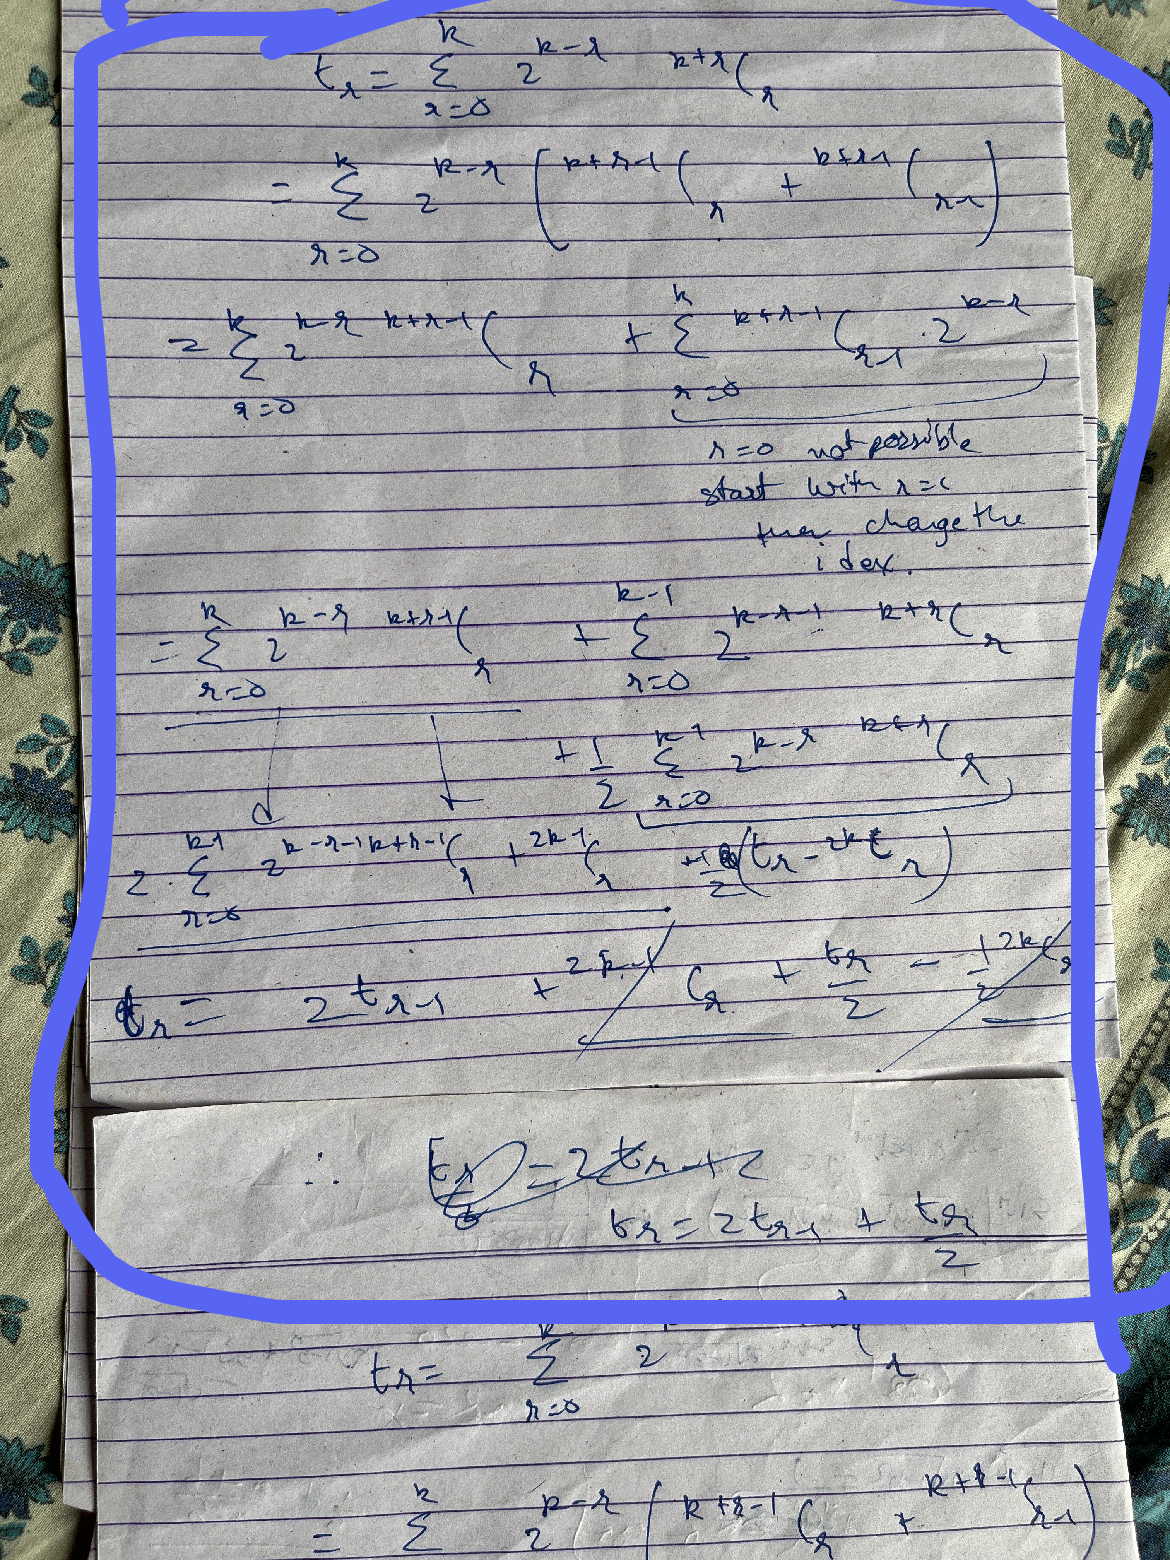 t_r = Σ_{r=0}^{k} 2^{k-r} ^{k+r}C_r
= Σ_{r=0}^{k} 2^{k-r} ( ^{k+r-1}C_r + ^{k+r-1}C_{r-1} )
= Σ_{r=0}^{k} 2^{k-r} ^{k+r-1}C_r + Σ_{r=0}^{k} ^{k+r-1}C_{r-1} · 2^{k-r}
r=0 not possible
start with r=1
then change the
idex.
= Σ_{r=0}^{k} 2^{k-r} ^{k+r-1}C_r + Σ_{r=0}^{k-1} 2^{k-r-1} ^{k+r}C_r
+ 1/2 Σ_{r=0}^{k-1} 2^{k-r} ^{k+r}C_r
2 · Σ_{r=0}^{k-1} 2^{k-r-1} ^{k+r-1}C_r + ^{2k-1}C_r + 1/2 (t_r - ^{2k}C_r)
t_r = 2t_{r-1} + ^{2k-1}C_r + t_r/2 - 1/2 ^{2k}C_r
∴
t_r = 2t_{r-1} + t_r/2
t_r = Σ_{r=0}^{k} 2 C_r
= Σ^{k} 2^{k-r} ( ^{k+r-1}C_r + ^{k+r-1}C_{r-1} )